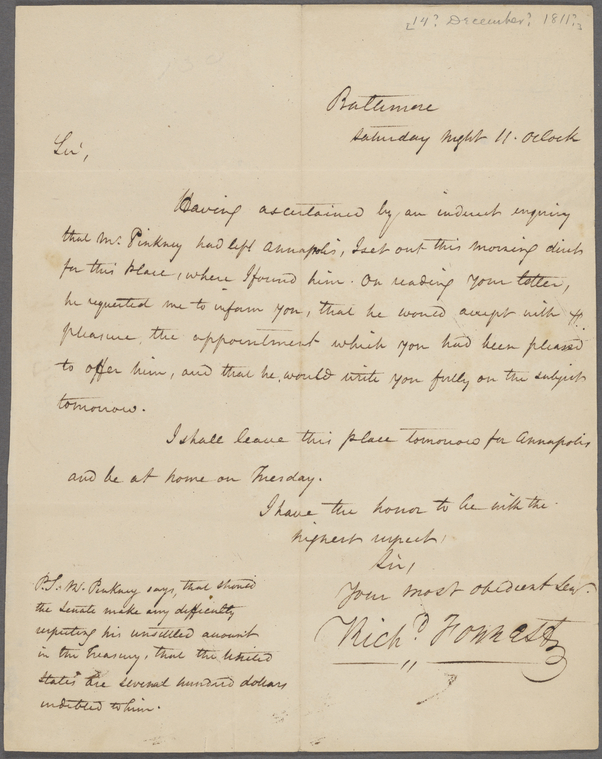 [14? December? 1811?]
Baltimore
Saturday night 11. oClock
Sir,
Having ascertained by an indirect enquiry
that Mr. Pinkney had left Annapolis, I set out this morning direct
for this place, where I found him. On reading your letter,
he requested me to inform you, that he would accept with
pleasure the appointment which you had been pleased
to offer him, and that he would write you fully on the subject
tomorrow.
I shall leave this place tomorrow for Annapolis
and be at home on Tuesday.
I have the honor to be with the
highest respect,
Sir,
Your most obedient Ser.
Richd. Forrest
P.S. Mr. Pinkney says, that should
the Senate make any difficulty
respecting his unsettled account
in the Treasury, that the United
States are several hundred dollars
indebted to him.